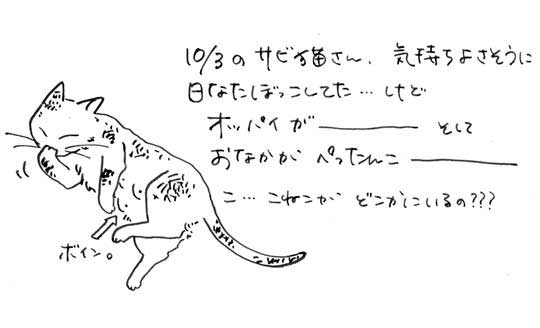 10/3のサビ猫さん、気持ちよさそうに
日なたぼっこしてた…けど
オッパイが――― そして
おなかが ぺったんこ ―――
こ… こねこが どこかにいるの???
ボイン。